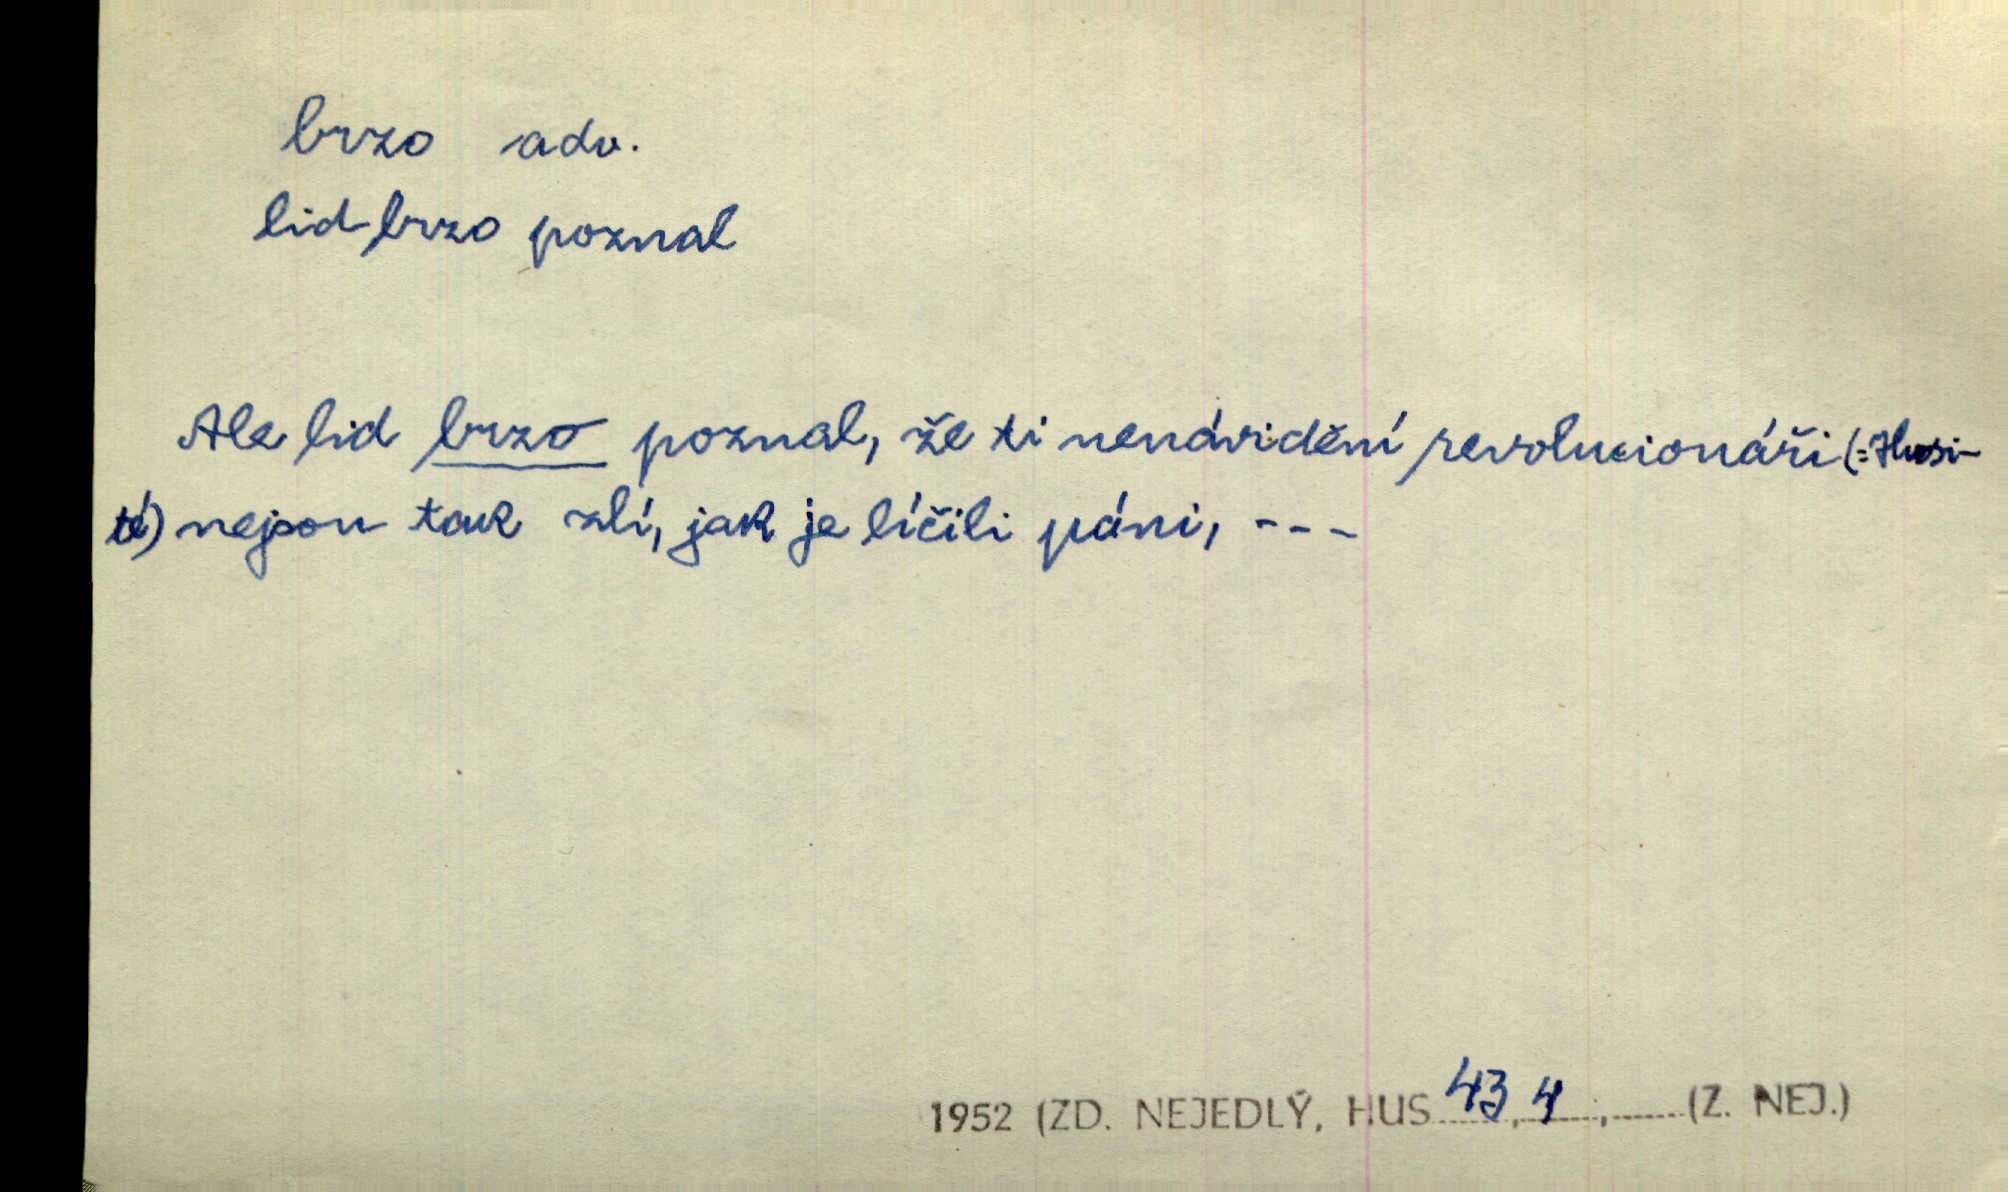 brzo adv.
lid brzo poznal
Ale lid brzo poznal, že ti nenávidění revolucionáři (= Husi-
té) nejsou tak zlí, jak je líčili páni, ---
1952 (ZD. NEJEDLÝ, HUS 43, 4, (Z. NEJ.)